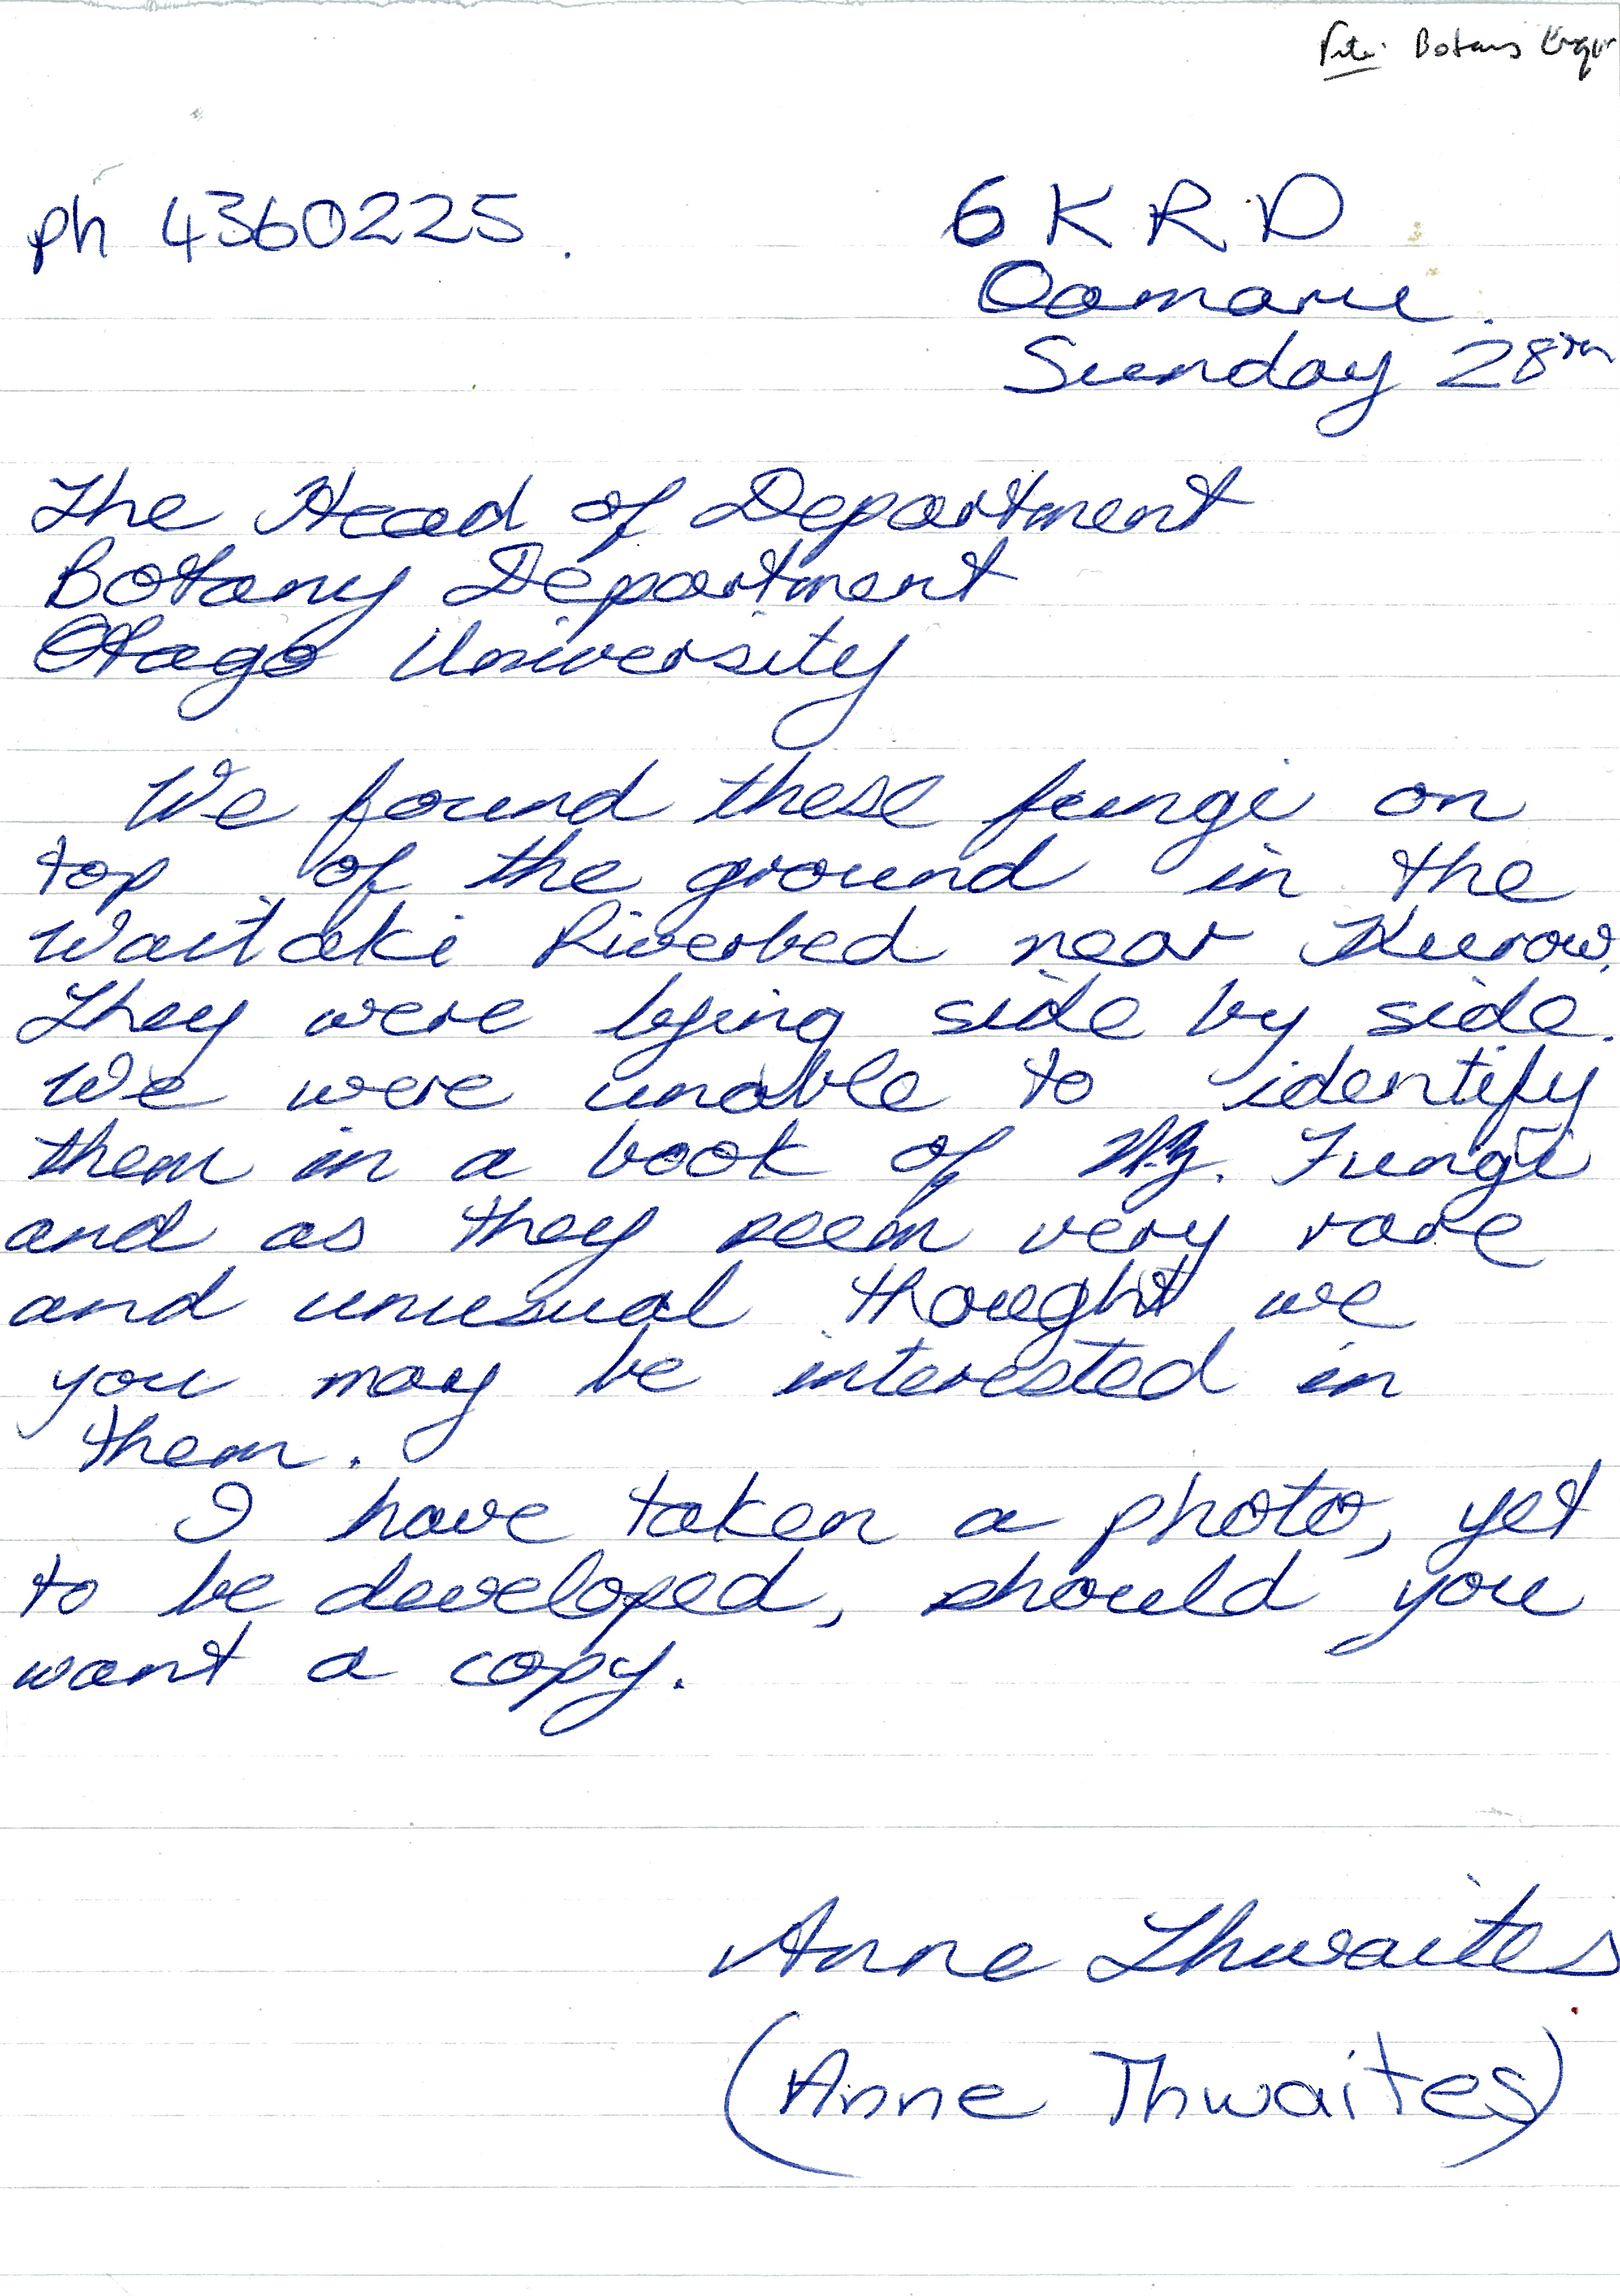 Botany
ph 4360225.
6 K R D
Oamaru.
Sunday 28th
The Head of Department
Botany Department
Otago University
We found these fungi on
top of the ground in the
Waitaki Riverbed near Kurow.
They were lying side by side.
We were unable to identify
them in a book of N.Z. Fungi
and as they seem very rare
and unusual thought we
you may be interested in
them.
I have taken a photo, yet
to be developed, should you
want a copy.
Anne Thwaites
(Anne Thwaites)